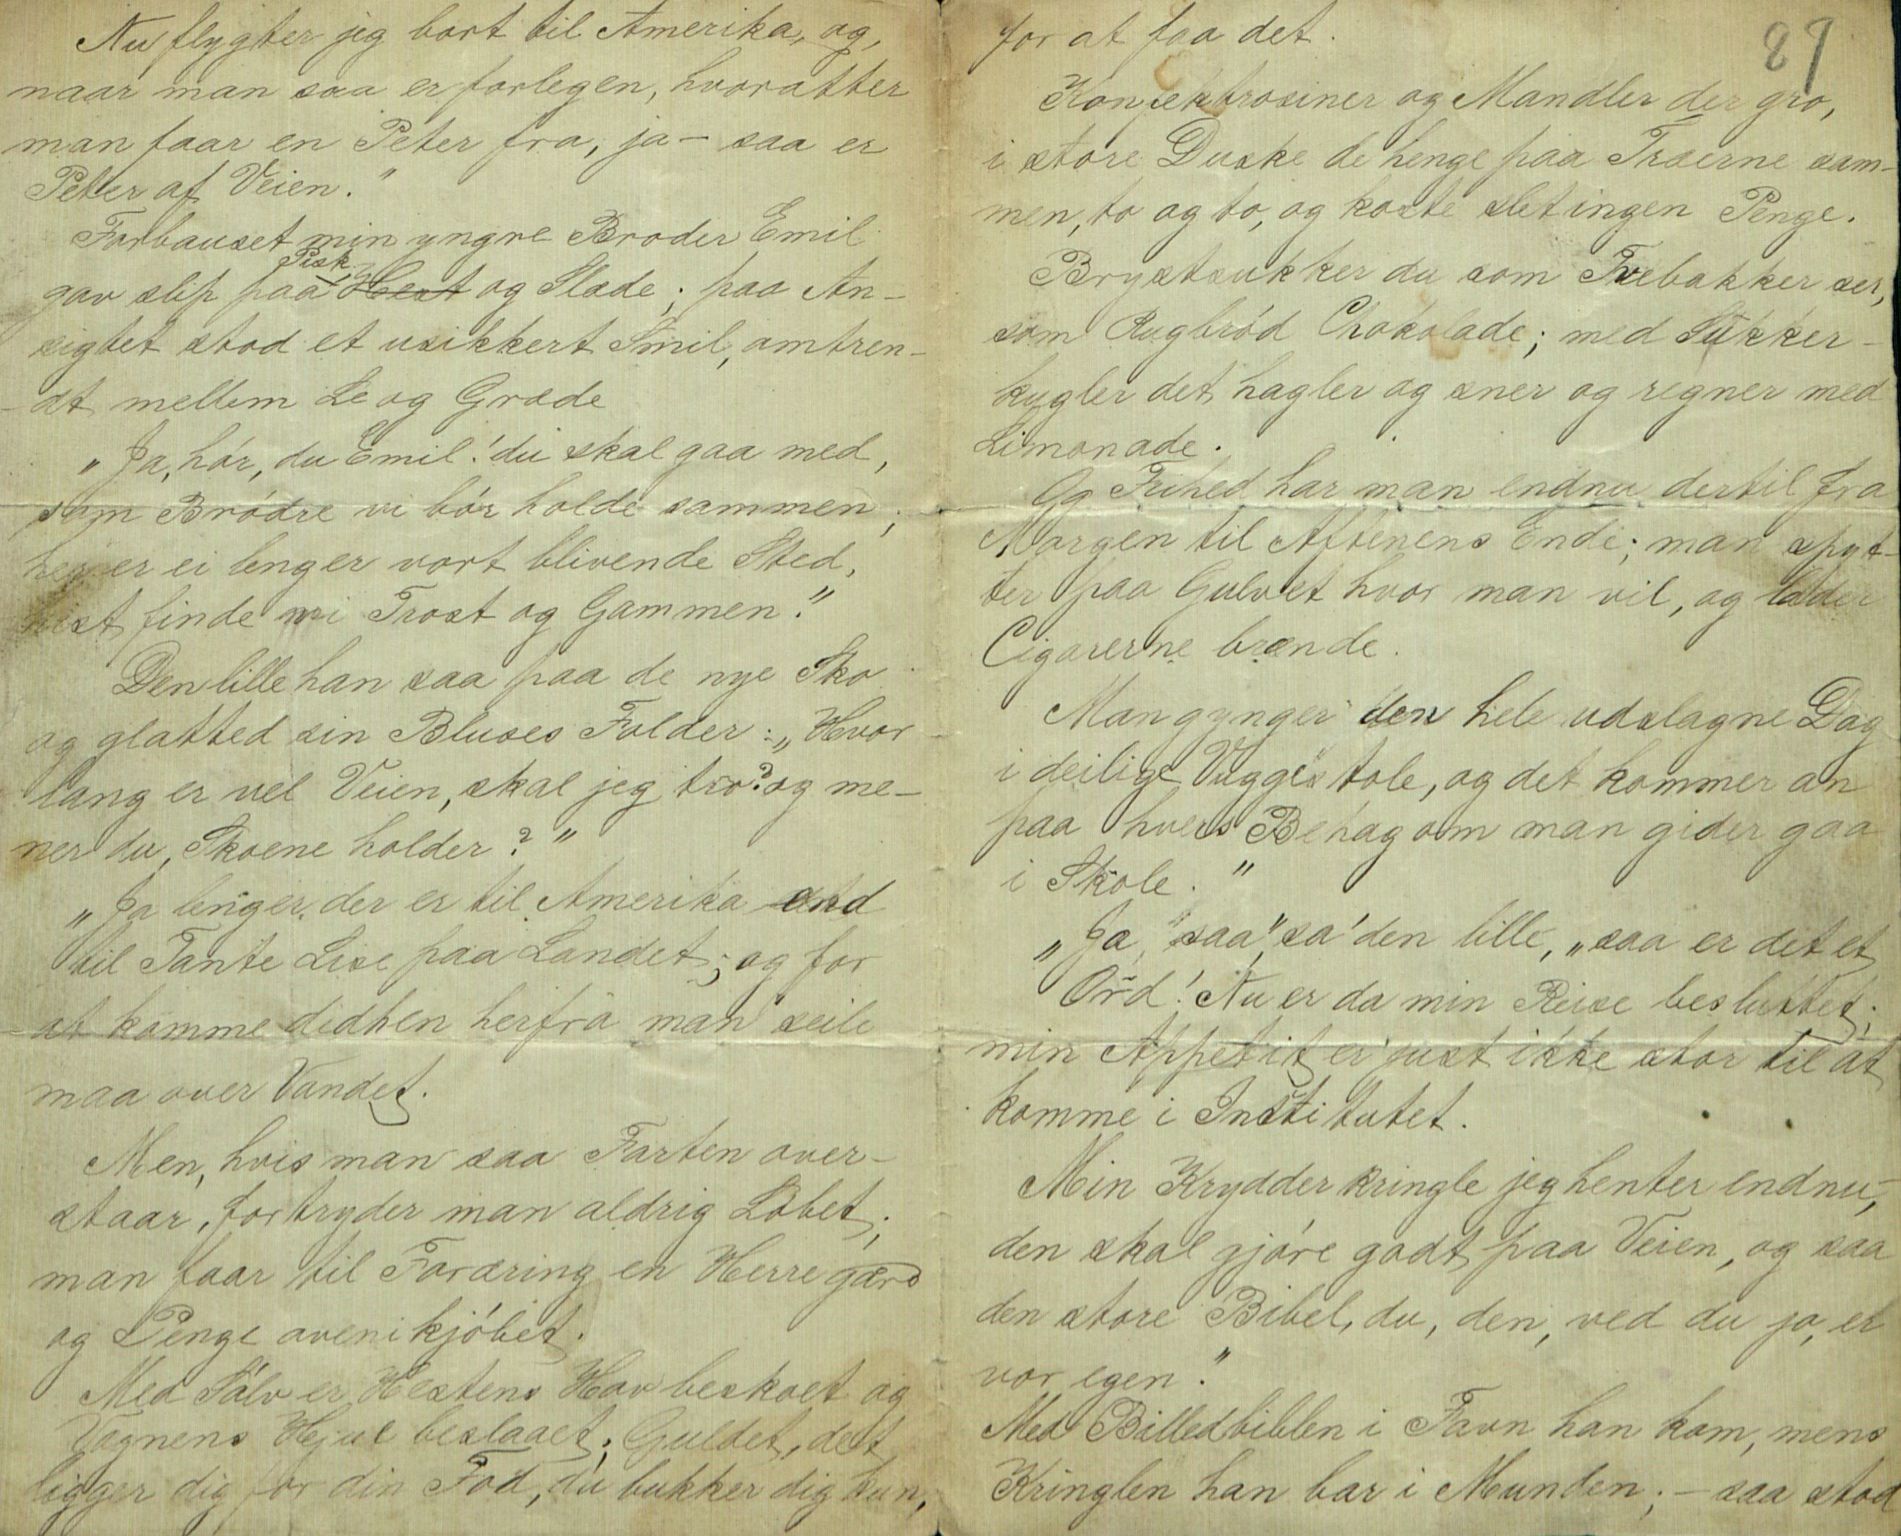 Nu flygter jeg bort til Amerika, og,
naar man saa er forlegen, hvoratter
man faar en Peter fra, ja — saa er
Peter af Veien."
Forbauset min yngre Broder Emil
Pisk
gav slip paa Hest og Slæde; paa An-
sigtet stod et usikkert Smil, omtren-
dt mellem Le og Græde
„Ja, hør, du Emil! du skal gaa med,
som Brødre vi bør holde sammen;
her er ei lenger vort blivende Sted,
hist finde vi Trøst og Gammen."
Den lille han saa paa de nye Sko
og glatted sin Bluses Folder: „Hvor
lang er vel Veien, skal jeg tro? og me-
ner du, Skoene holder?"
„Ja lenger der er til Amerika end
til Tante Lise paa Landet; og for
at komme didhen herfra man seile
maa over Vandet.
Men, hvis man saa Farten over-
staar, fortryder man aldrig Løbet;
man faar til Foræring en Herregård
og Penge ovenikjøbet.
Med Sølv er Hestens Hov beskoet og
Vognens Hjul beslaaet; Guldet, det
ligger dig for din Fod, du bukker dig kun,
for at faa det.
89
Konfektrosiner og Mandler der gro,
i store Duske de henge paa Træerne sam-
men, to og to, og koste slet ingen Penge.
Brystsukker du som Tvebakker ser,
som Rugbrød Chokolade; med Sukker-
kugler det hagler og sner og regner med
Limonade.
Og Frihed har man endnu dertil fra
Morgen til Aftenens Ende; man spyt-
ter paa Gulvet hvor man vil, og lader
Cigarerne brænde.
Man gynger den hele udslagne Dag
i deilige Vuggestole, og det kommer an
paa hvers Behag om man gider gaa
i Skole."
„Ja," saa," sa' den lille, „saa er det et
Ord! Nu er da min Reise besluttet;
min Appetit er just ikke stor til at
komme i Institutet.
Min Krydderkringle jeg henter endnu,
den skal gjøre godt paa Veien, og saa
den store Bibel, du, den, ved du jo, er
vor egen."
Med Billedbiblen i Favn han kom, mens
Kringlen han bar i Munden; — saa stod